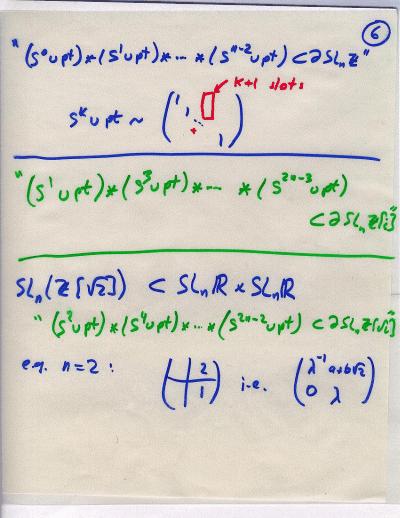 6
"(S⁰∪pt)*(S¹∪pt)*...*(Sⁿ⁻²∪pt)⊂∂SLₙℤ"
k+1 slots
Sᵏ∪pt ~ (1 1 ⋱ 1)
"(S¹∪pt)*(S³∪pt)*... *(S²ⁿ⁻³∪pt)
⊂∂SLₙℤ[i]"
SLₙ(ℤ[√2]) ⊂ SLₙℝ × SLₙℝ
"(S²∪pt)*(S⁴∪pt)*...*(S²ⁿ⁻²∪pt)⊂∂SLₙℤ[√2]"
e.g. n=2: (2 1) i.e. (λ⁻¹ a+b√2
0 λ)